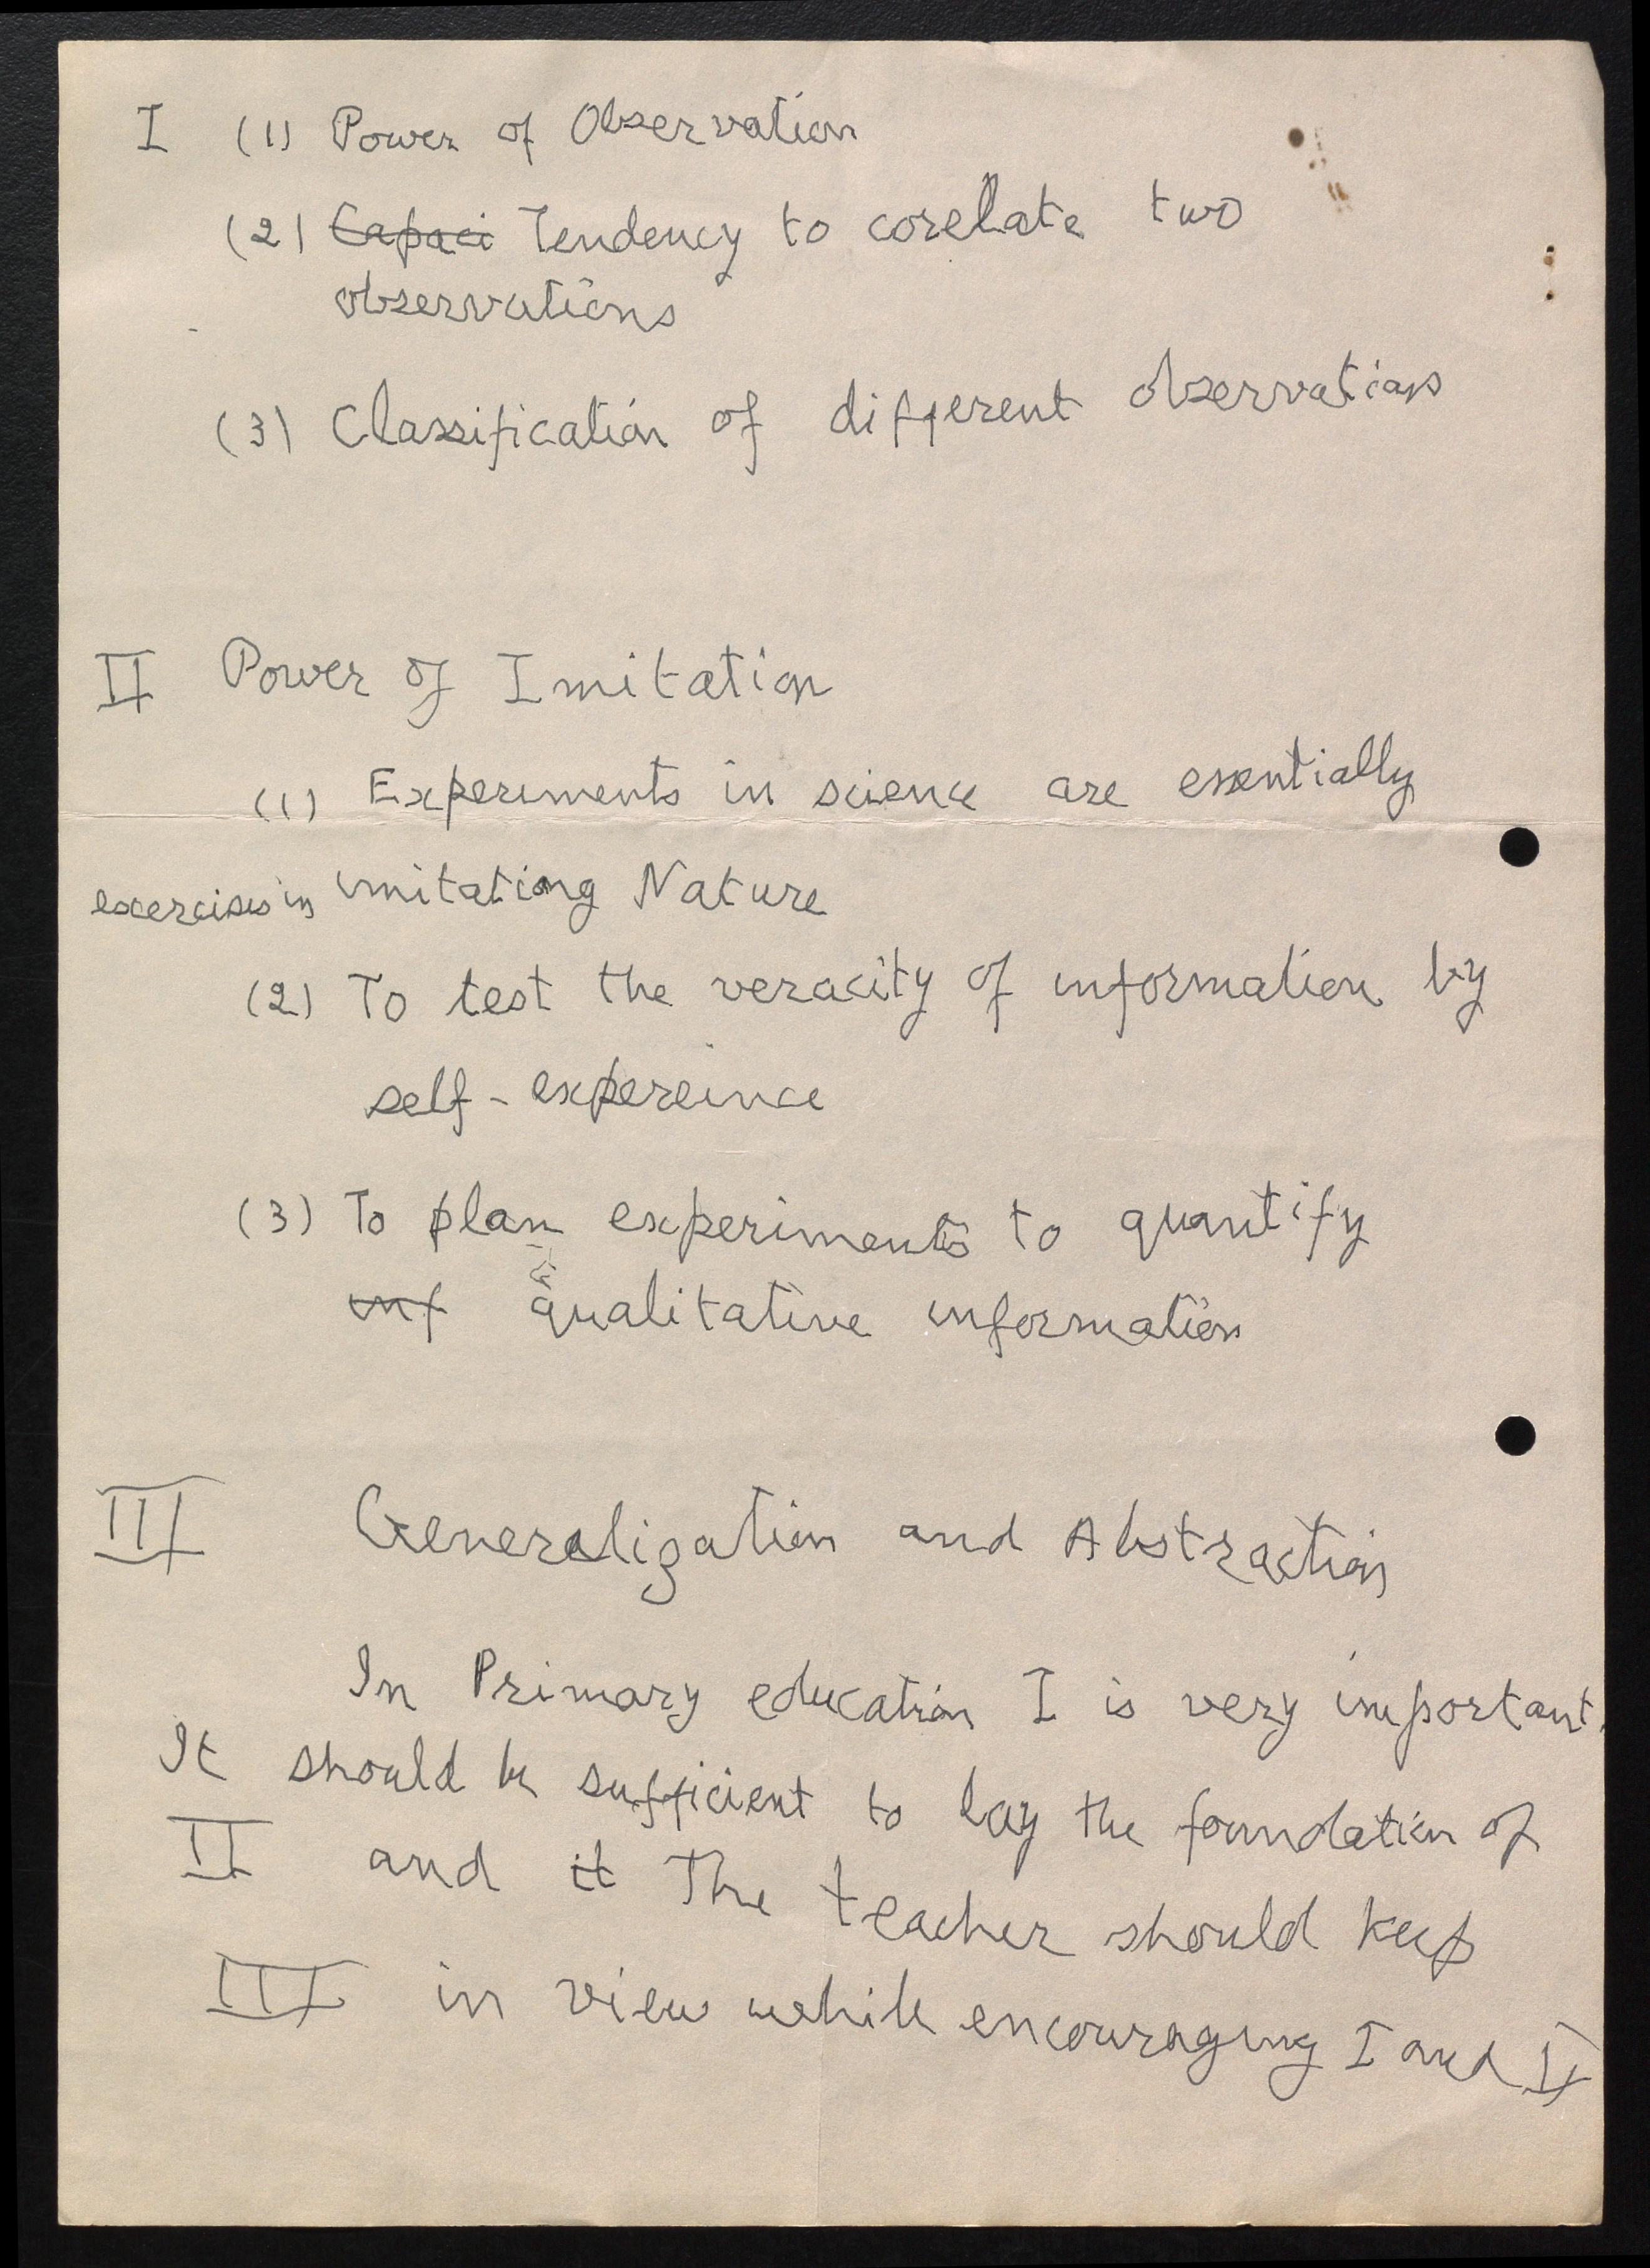 I (1) Power of Observation
(2) Capaci Tendency to corelate two
observations
(3) Classification of different observations
II Power of Imitation
(1) Experiments in science are essentially
exercises in imitating Nature
(2) To test the veracity of information by
self-expereince
(3) To plan experiments to quantify
inf qualitative information
III Generalization and Abstraction
In Primary education I is very important.
It should be sufficient to lay the foundation of
II and it The teacher should keep
III in view while encouraging I and II